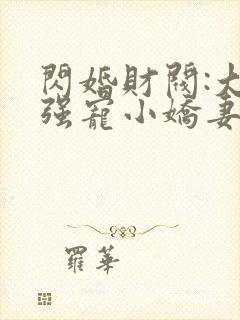 閃婚財閥:大
強寵小嬌妻
羅華